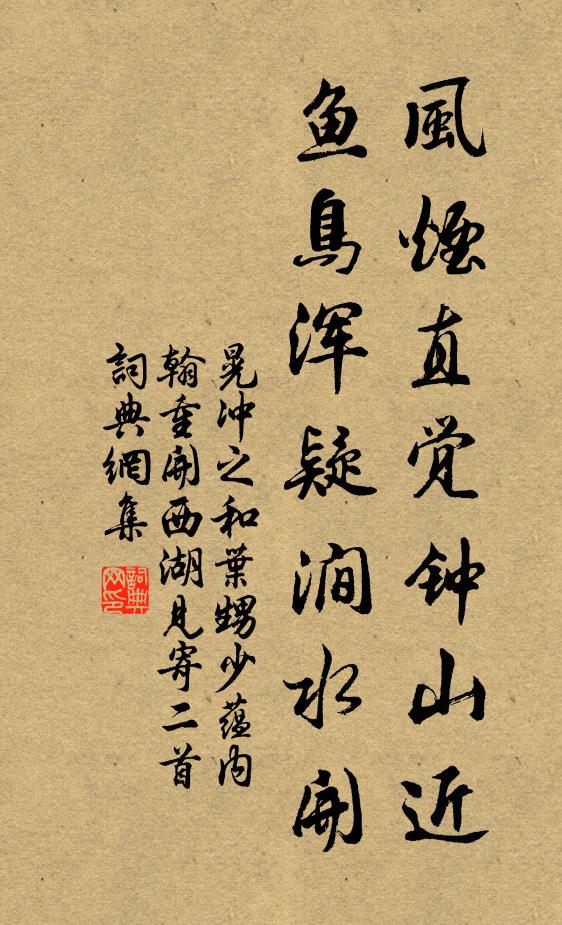 風煙直觉钟山近
鱼鳥浑疑澗水開
晁冲之和葉甥少蕴内
翰重開西湖見寄二首
詞典網集
詞典
网印